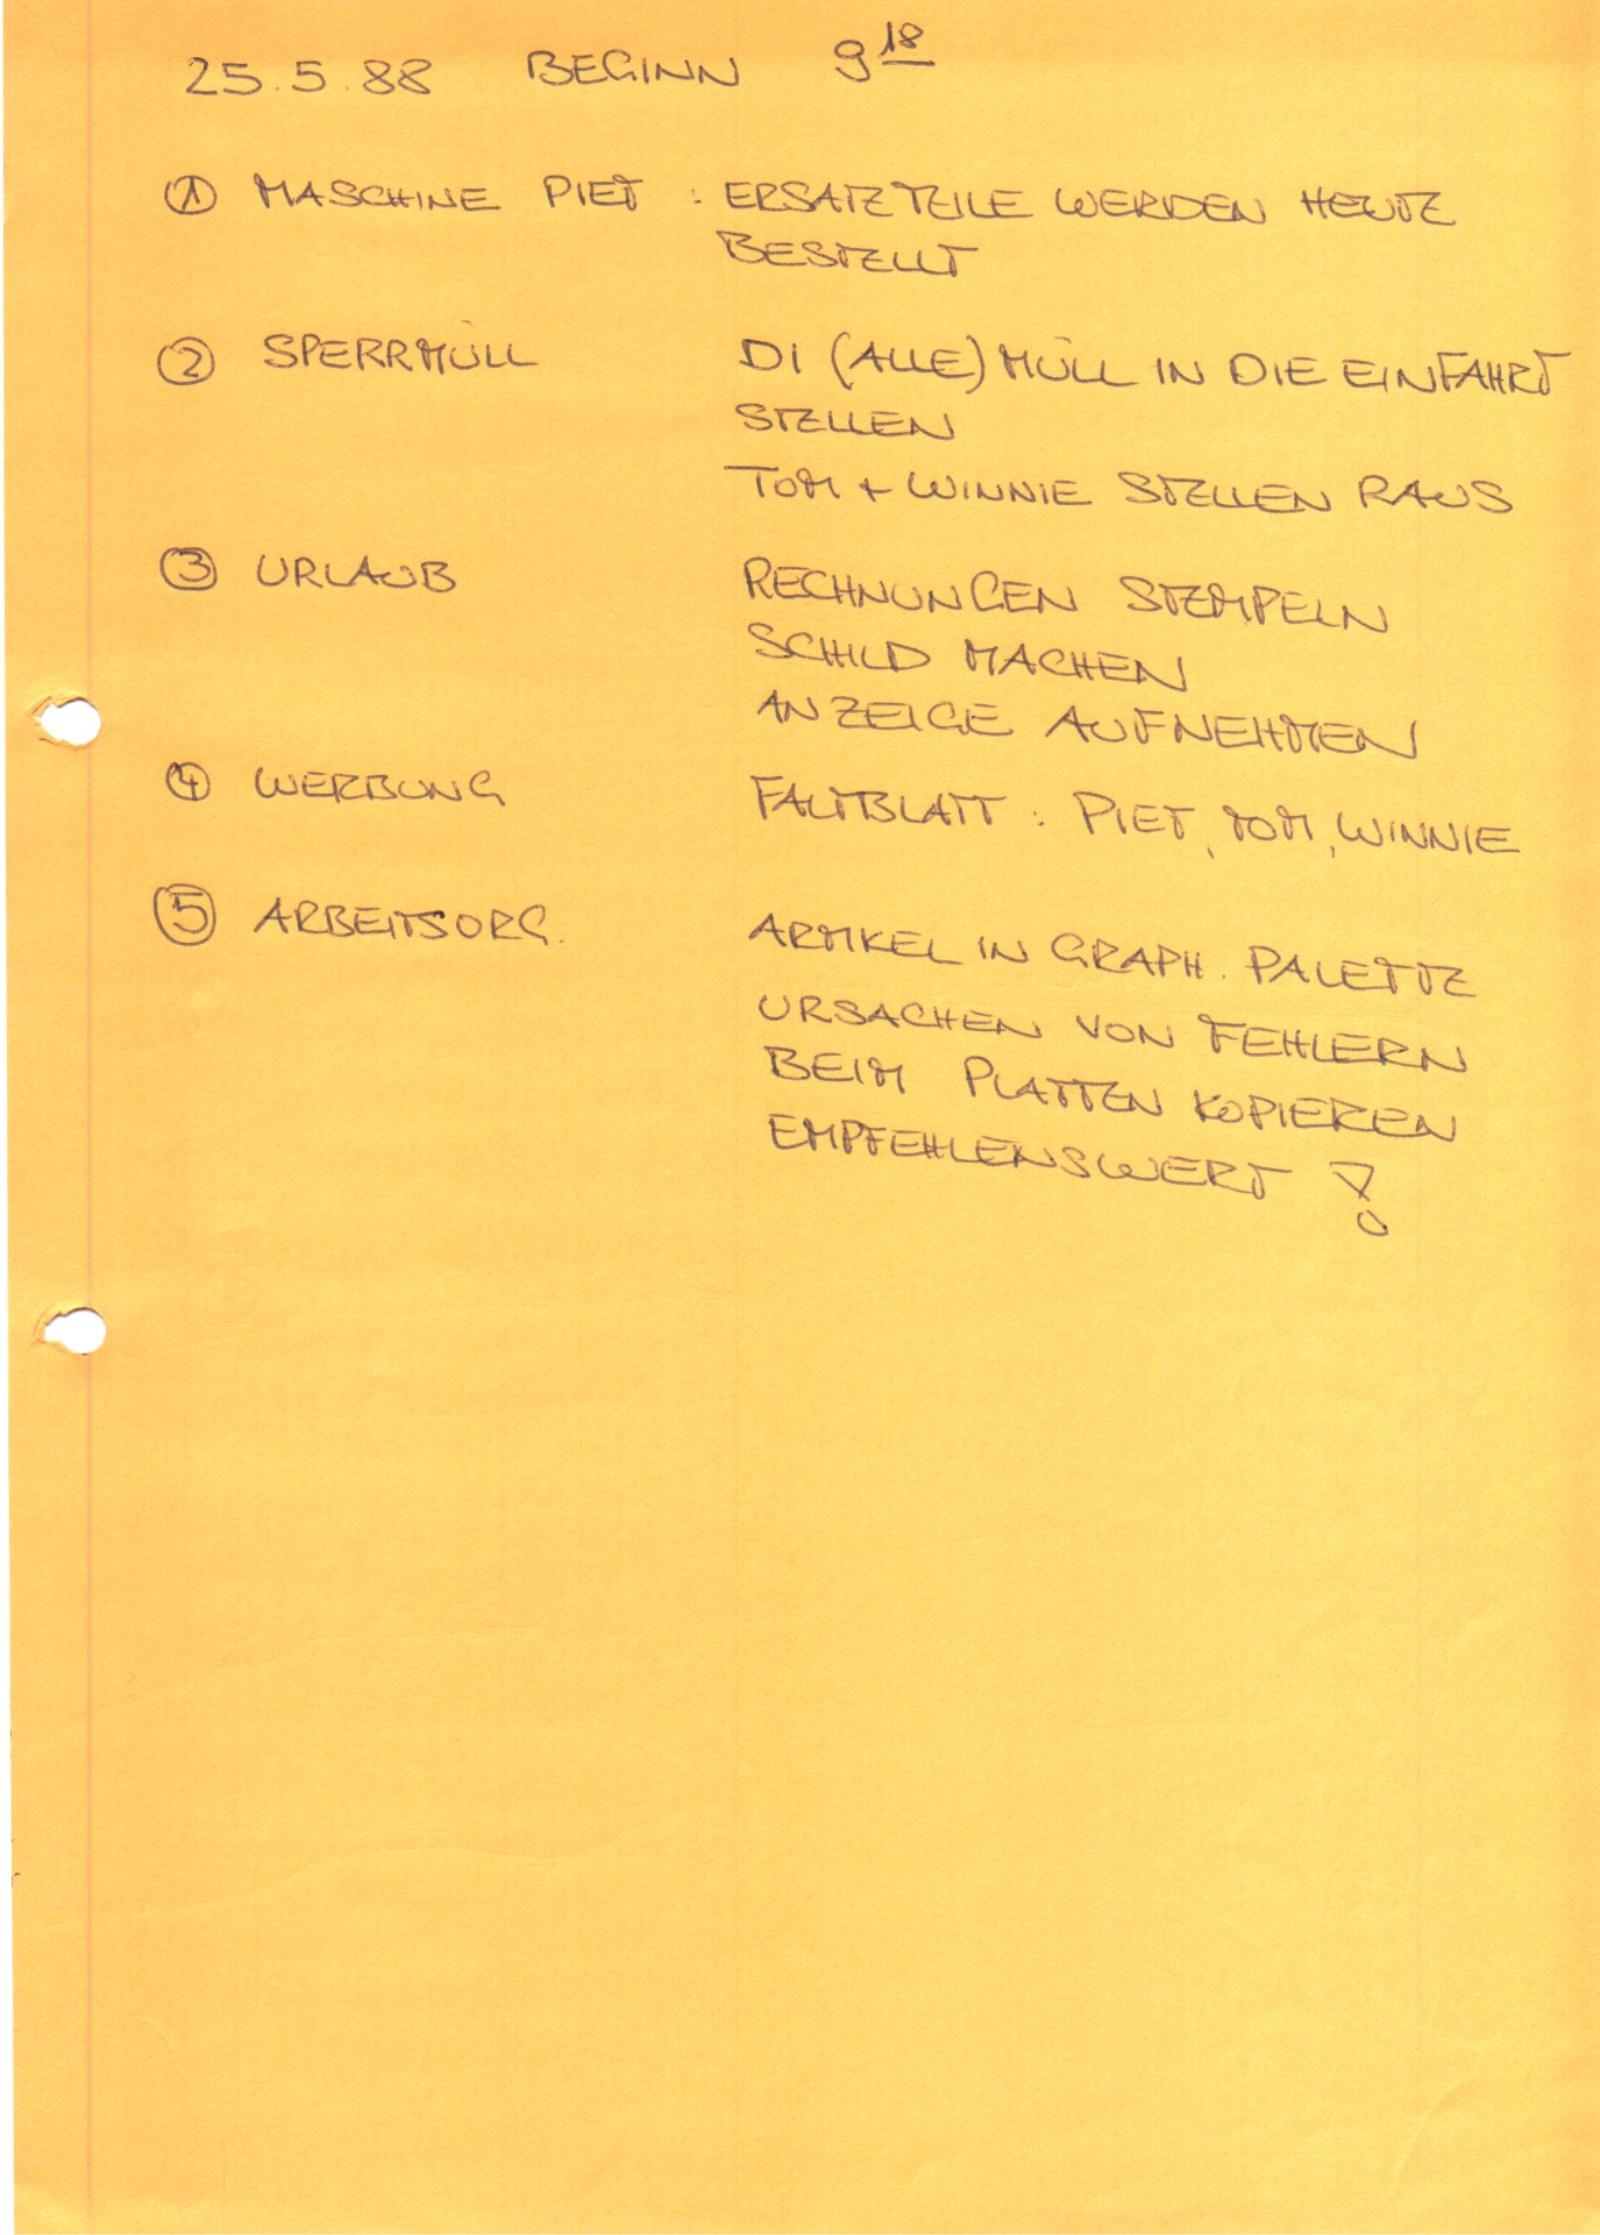 25.5.88 BEGINN 9 18
① MASCHINE PIET : ERSATZTEILE WERDEN HEUTE
BESTELLT
② SPERRMÜLL DI (ALLE) MÜLL IN DIE EINFAHRT
STELLEN
TOM + WINNIE STELLEN RAUS
③ URLAUB RECHNUNGEN STEMPELN
SCHILD MACHEN
ANZEIGE AUFNEHMEN
④ WERBUNG FALTBLATT : PIET, TOM, WINNIE
⑤ ARBEITSORG. ARTIKEL IN GRAPH. PALETTE
URSACHEN VON FEHLERN
BEIM PLATTEN KOPIEREN
EMPFEHLENSWERT !